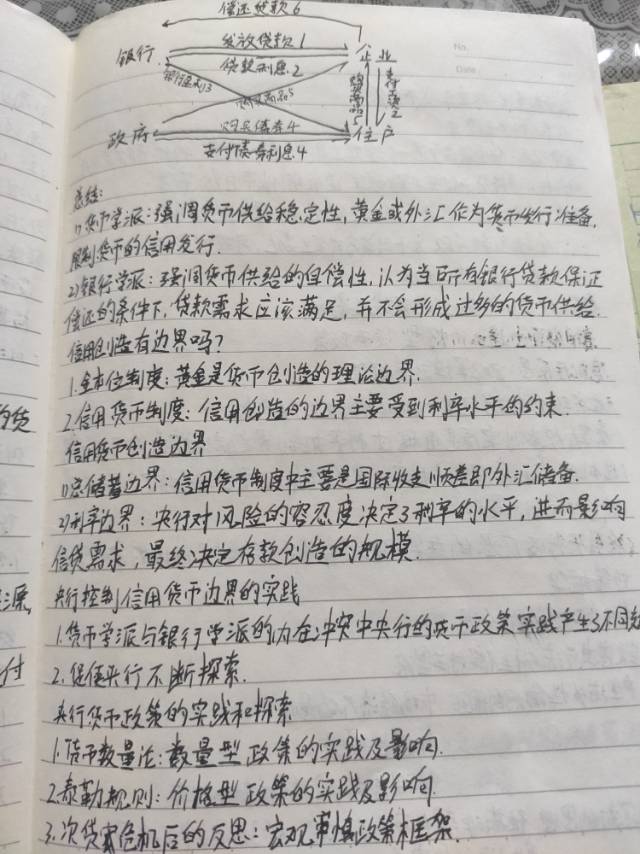 偿还贷款6
No.
Date
发放贷款1
银行
企业
贷款利息2
银行盈利3
购买商品5
购买商品5
购买债券4
政府
住户
支付债券利息4
总结:
1)货币学派:强调货币供给稳定性,黄金或外汇作为货币发行准备,
限制货币的信用发行.
2)银行学派:强调货币供给的自偿性,认为当所有银行贷款保证
偿还的条件下,贷款需求应该满足,并不会形成过多的货币供给.
信用创造有边界吗?
1.金本位制度:黄金是货币创造的理论边界.
2.信用货币制度:信用创造的边界主要受到利率水平的约束.
信用货币创造边界
1)总储蓄边界:信用货币制度中主要是国际收支顺差即外汇储备.
2)利率边界:央行对风险的容忍度决定了利率的水平,进而影响
信贷需求,最终决定存款创造的规模.
央行控制信用货币边界的实践
1.货币学派与银行学派的内在冲突中央行的货币政策实践产生了不同
2.促使央行不断探索.
央行货币政策的实践和探索
1.货币数量论:数量型政策的实践及影响.
2.泰勒规则:价格型政策的实践及影响.
3.次贷危机后的反思:宏观审慎政策框架.